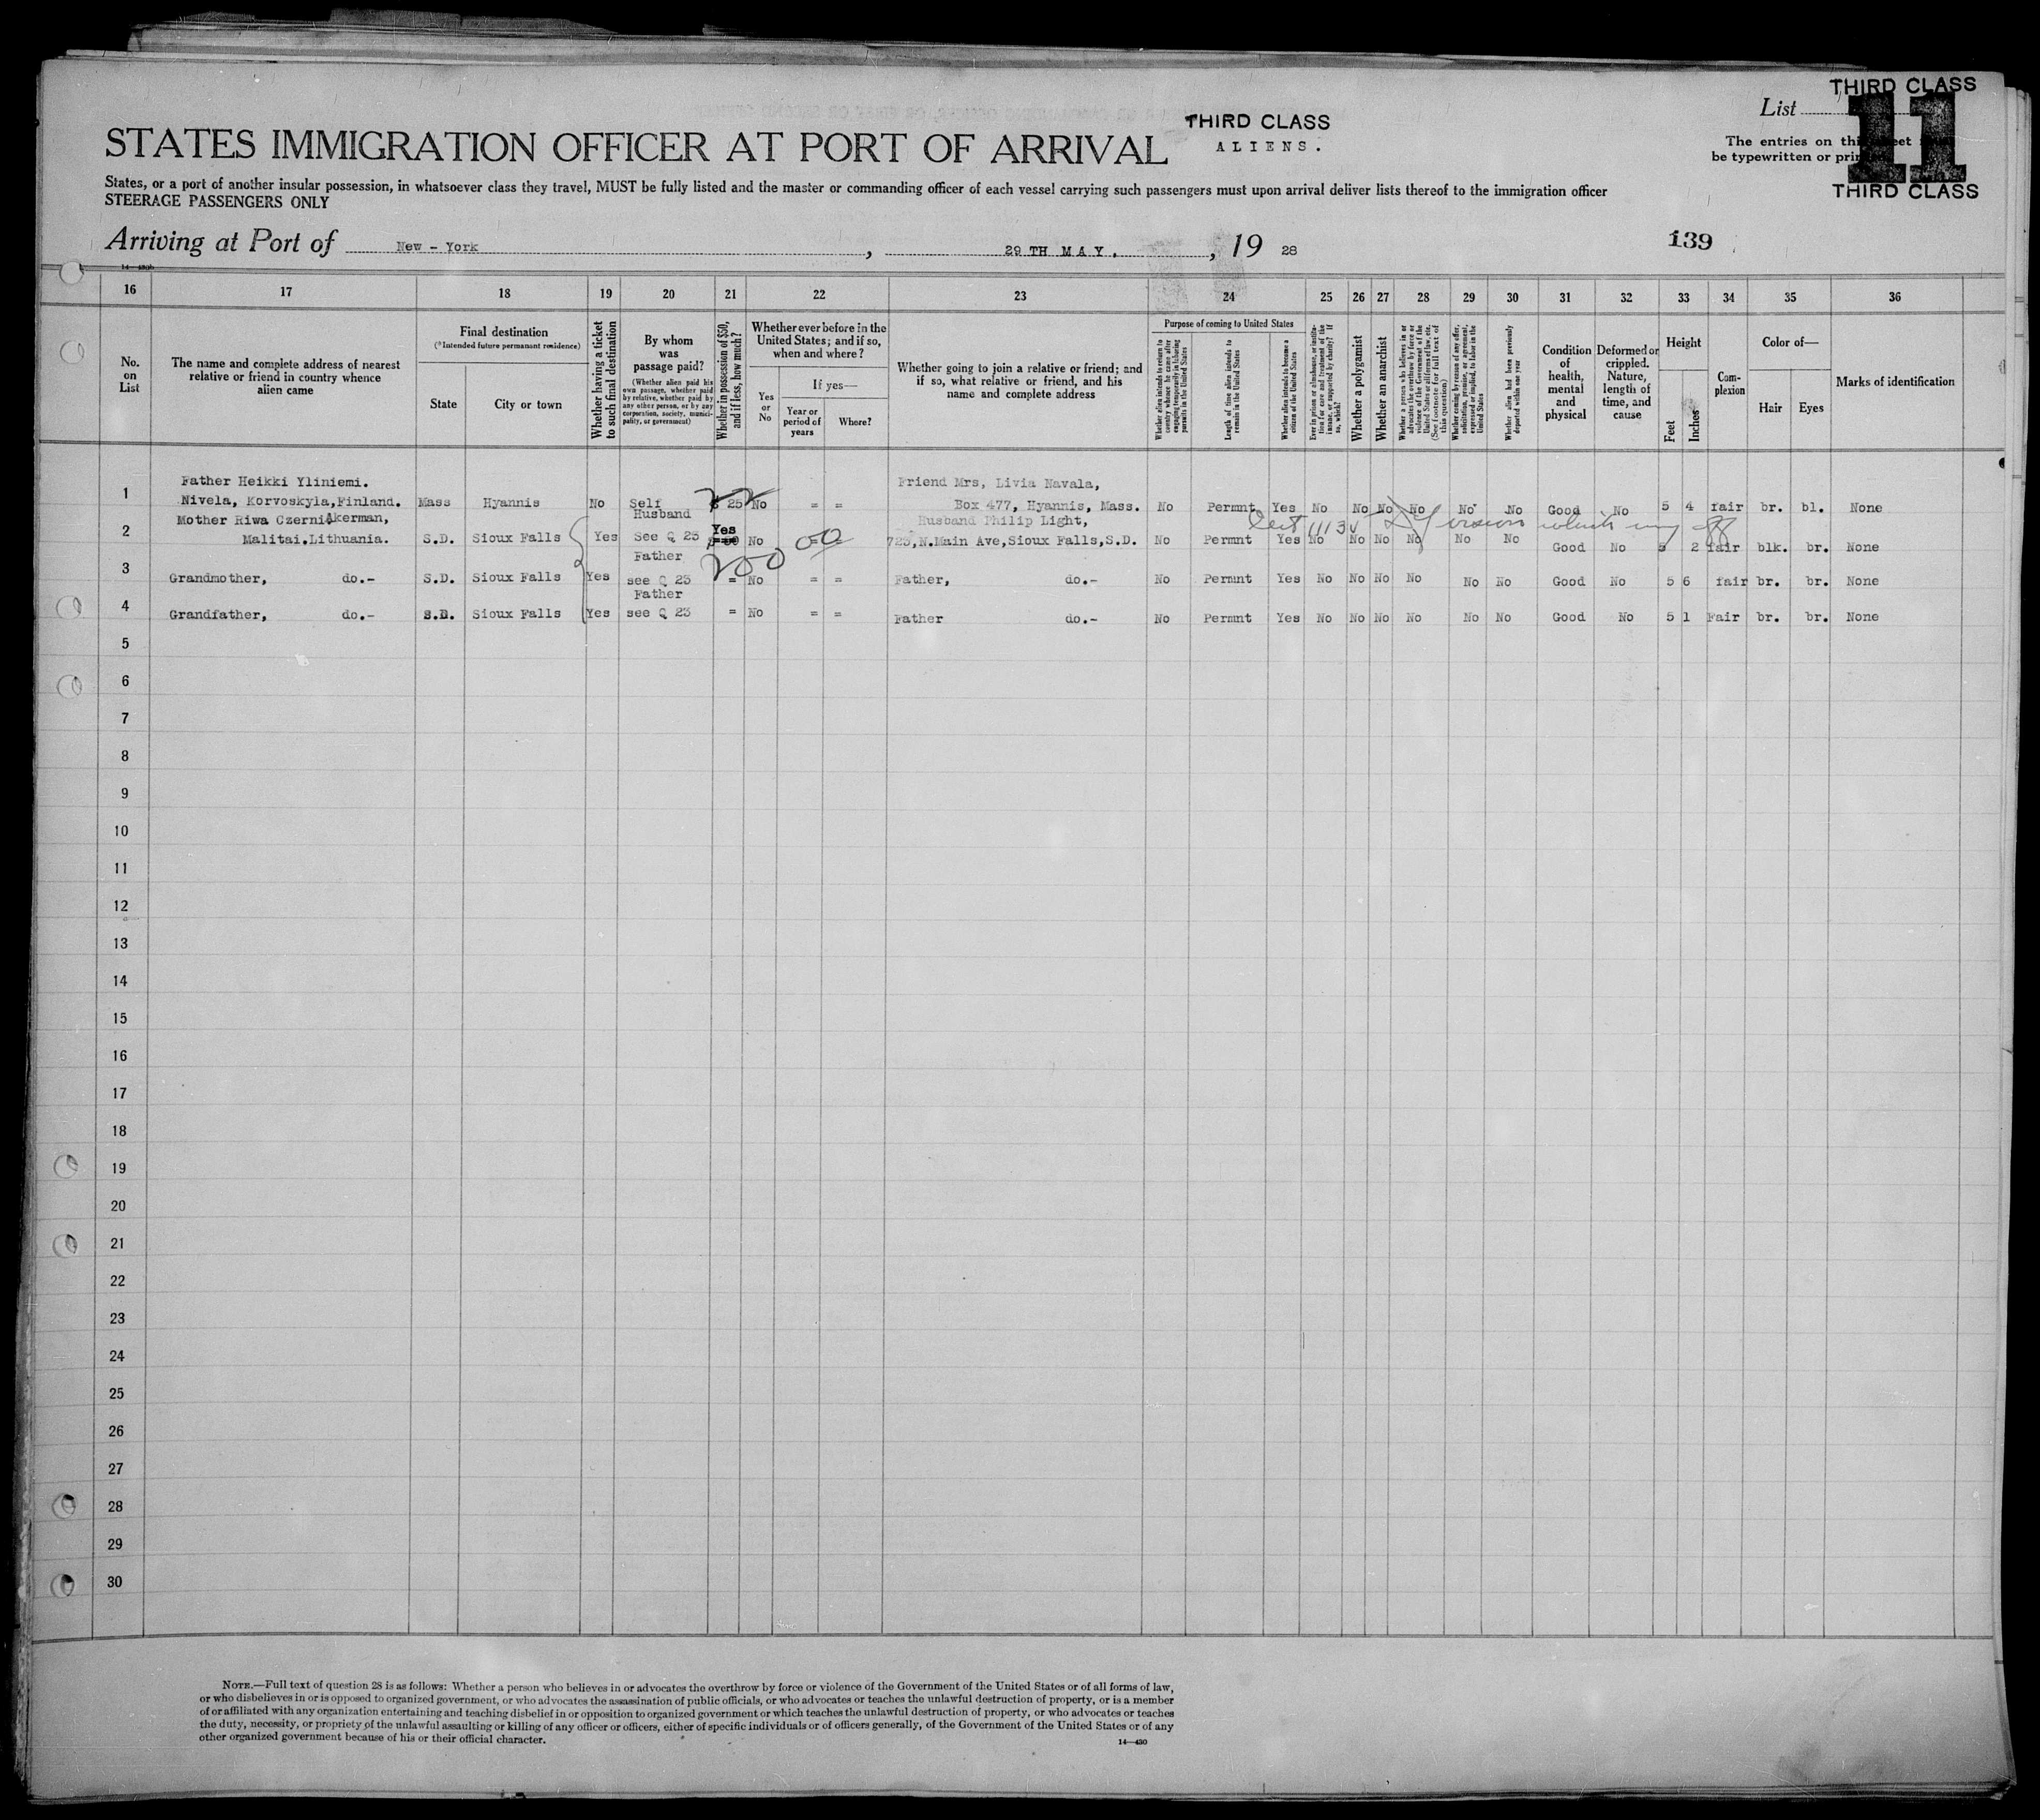 THIRD CLASS
List
11
THIRD CLASS
ALIENS.
STATES IMMIGRATION OFFICER AT PORT OF ARRIVAL
The entries on this sheet
be typewritten or
THIRD CLASS
States, or a port of another insular possession, in whatsoever class they travel, MUST be fully listed and the master or commanding officer of each vessel carrying such passengers must upon arrival deliver lists thereof to the immigration officer
STEERAGE PASSENGERS ONLY
Arriving at Port of New - York, 29 TH MAY., 19 28
139
16 17 18 19 20 21 22 23 24 25 26 27 28 29 30 31 32 33 34 35 36
No. on List
The name and complete address of nearest relative or friend in country whence alien came
Final destination
(*Intended future permanent residence)
State
City or town
Whether having a ticket to such final destination
By whom was passage paid?
(Whether alien paid his own passage, whether paid by relative, whether paid by any other person, or by any corporation, society, municipality, or government)
Whether in possession of $50, and if less, how much?
Whether ever before in the United States; and if so, when and where?
Yes or No
If yes—
Year or period of years
Where?
Whether going to join a relative or friend; and if so, what relative or friend, and his name and complete address
Purpose of coming to United States
Whether alien intends to return to country whence he came after engaging temporarily in laboring pursuits in the United States
Length of time alien intends to remain in the United States
Whether alien intends to become a citizen of the United States
Ever in prison or almshouse, or institution for care and treatment of the insane, or supported by charity? If so, which?
Whether a polygamist
Whether an anarchist
Whether a person who believes in or advocates the overthrow by force or violence of the Government of the United States or all forms of law, etc. (See footnote for full text of this question)
Whether coming by reason of any offer, solicitation, promise, or agreement, expressed or implied, to labor in the United States
Whether alien had been previously deported within one year
Condition of health, mental and physical
Deformed or crippled. Nature, length of time, and cause
Height
Feet
Inches
Complexion
Color of—
Hair
Eyes
Marks of identification
1 Father Heikki Yliniemi.
Nivela, Korvoskyla, Finland. Mass Hyannis No Self $ 25 No = = Friend Mrs, Livia Navala,
Box 477, Hyannis, Mass. No Permnt Yes No No No No No No Good No 5 4 fair br. bl. None
2 Mother Riwa Czernia Akerman,
Malitai. Lithuania. S.D. Sioux Falls Yes Husband
See Q 23 Yes No = Husband Philip Light,
723, N.Main Ave, Sioux Falls, S.D. No Permnt Yes No No No No No No Good No 5 2 fair blk. br. None
200 00
3 Grandmother, do.- S.D. Sioux Falls Yes Father
see Q 23 = No = = Father, do.- No Permnt Yes No No No No No No Good No 5 6 fair br. br. None
4 Grandfather, do.- S.D. Sioux Falls Yes Father
see Q 23 = No = = Father do.- No Permnt Yes No No No No No No Good No 5 1 Fair br. br. None
5
6
7
8
9
10
11
12
13
14
15
16
17
18
19
20
21
22
23
24
25
26
27
28
29
30
NOTE.—Full text of question 28 is as follows: Whether a person who believes in or advocates the overthrow by force or violence of the Government of the United States or of all forms of law,
or who disbelieves in or is opposed to organized government, or who advocates the assassination of public officials, or who advocates or teaches the unlawful destruction of property, or is a member
of or affiliated with any organization entertaining and teaching disbelief in or opposition to organized government or which teaches the unlawful destruction of property, or who advocates or teaches
the duty, necessity, or propriety of the unlawful assaulting or killing of any officer or officers, either of specific individuals or of officers generally, of the Government of the United States or of any
other organized government because of his or their official character.
14—430